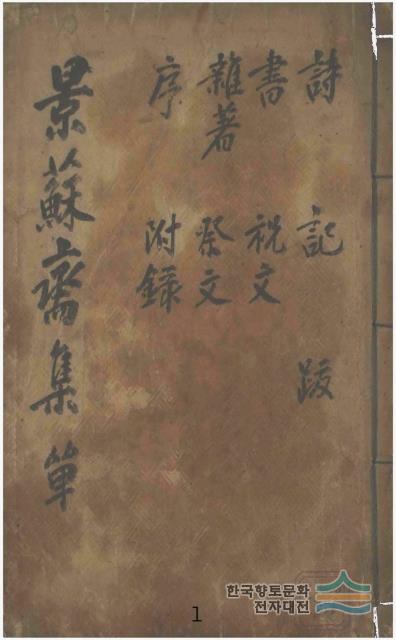 詩 記 跋
書 祝文
雜著 祭文
序 附錄
景蘇齋集單
1
한국향토문화
전자대전